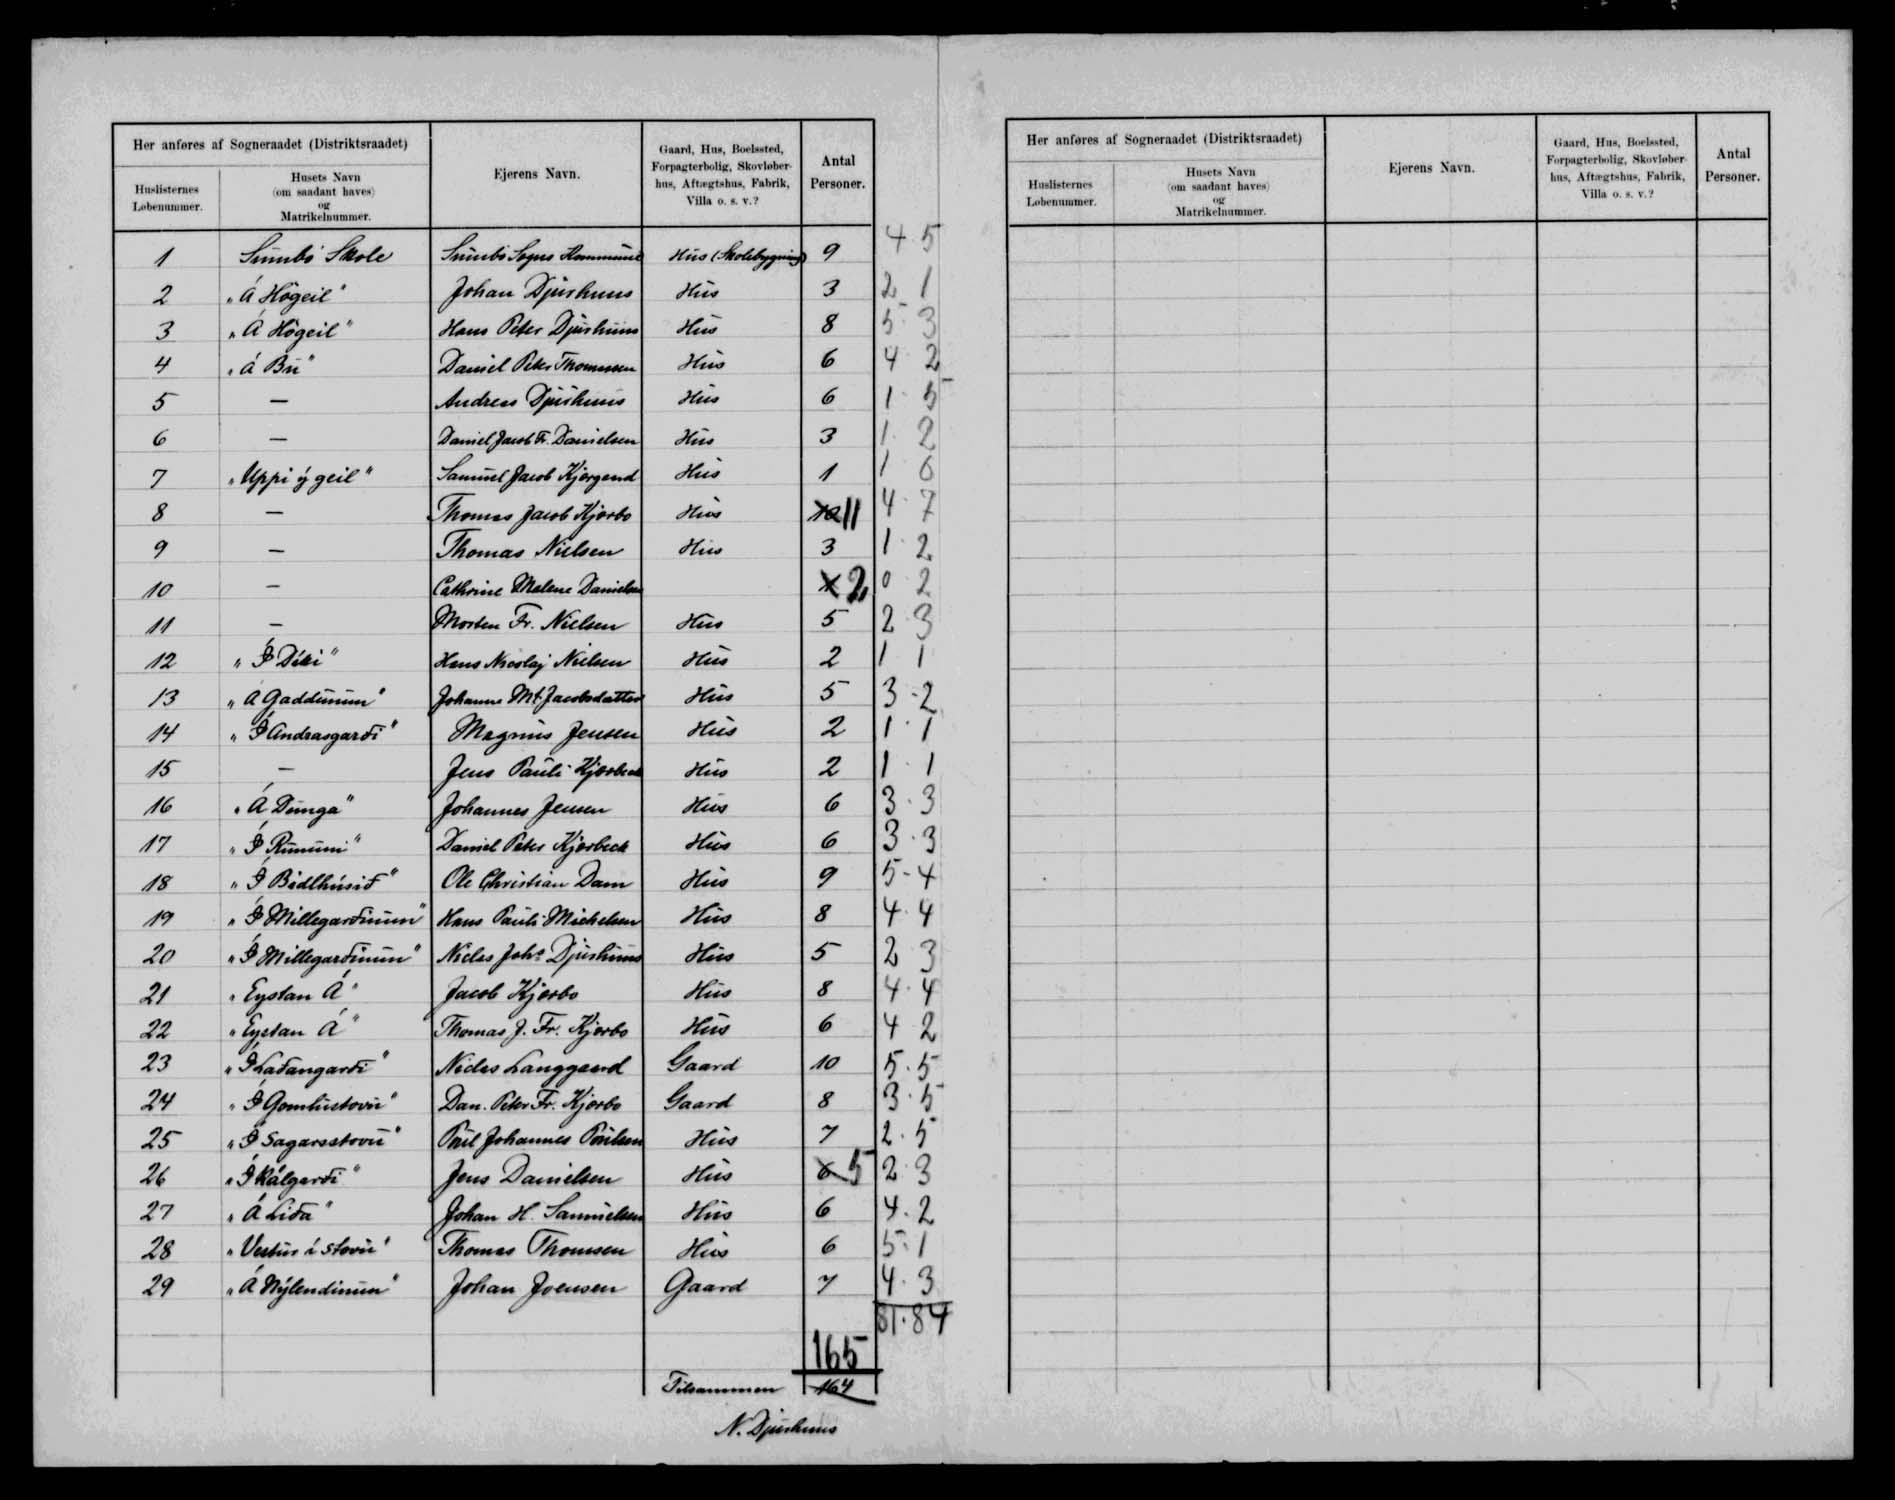 Her anføres af Sogneraadet (Distriktsraadet)
Huslisternes Løbenummer.
Husets Navn (om saadant haves) og Matrikelnummer.
Ejerens Navn.
Gaard, Hus, Boelssted, Forpagterbolig, Skovløberhus, Aftægtshus, Fabrik, Villa o. s. v.?
Antal Personer.
1 Sumbø Skole Sumbø Sogns Kommune Hus (Skolebygning) 9 4 · 5
2 "Á Høgeil" Johan Djurhuus Hus 3 2 1
3 "Á Høgeil" Hans Peter Djurhuus Hus 8 5 · 3
4 "Á Bø" Daniel Peter Thomassen Hus 6 4 2
5 — Andreas Djurhuus Hus 6 1 · 5
6 — Daniel Jacob Fr. Danielsen Hus 3 1 · 2
7 "Uppi ý geil" Samuel Jacob Kjergaard Hus 1 1 0
8 — Thomas Jacob Kjærbo Hus 10 11 4 · 7
9 — Thomas Nielsen Hus 3 1 · 2
10 — Cathrine Malene Danielsen 2 0 · 2
11 — Morten Fr. Nielsen Hus 5 2 · 3
12 "Í Díki" Hans Nicolaj Nielsen Hus 2 1 1
13 "Á Gaddunum" Johanne Mt. Jacobsdatter Hus 5 3 - 2
14 "Í Andrasgarði" Magnus Jensen Hus 2 1 · 1
15 — Jens Pauli Kjærbeck Hus 2 1 · 1
16 "Á Dunga" Johannes Jensen Hus 6 3 · 3
17 "Í Rununi" Daniel Peter Kjærbeck Hus 6 3 · 3
18 "Í Bødlhúsið" Ole Christian Dam Hus 9 5 - 4
19 "Í Millegarðinum" Hans Pauli Michelsen Hus 8 4 · 4
20 "Í Millegarðinum" Niclas Johs Djurhuus Hus 5 2 3
21 "Eystan Á" Jacob Kjærbo Hus 8 4 · 4
22 "Eystan Á" Thomas J. Fr. Kjærbo Hus 6 4 2
23 "Í Laðangarði" Niclas Langgaard Gaard 10 5 · 5
24 "Í Gomlustovu" Dan. Peter Fr. Kjærbo Gaard 8 3 · 5
25 "Í Sagarsstovu" Poul Johannes Poulsen Hus 7 2 · 5
26 "Í Kálgarði" Jens Danielsen Hus 6 5 2 · 3
27 "Á Liða" Johan H. Samuelsen Hus 6 4 · 2
28 "Vestur í stovu" Thomas Thomsen Hus 6 5 · 1
29 "Á Nýlendinum" Johan Joensen Gaard 7 4 · 3
81 · 84
165
Tilsammen 164
N. Djurhuus
Her anføres af Sogneraadet (Distriktsraadet)
Huslisternes Løbenummer.
Husets Navn (om saadant haves) og Matrikelnummer.
Ejerens Navn.
Gaard, Hus, Boelssted, Forpagterbolig, Skovløberhus, Aftægtshus, Fabrik, Villa o. s. v.?
Antal Personer.